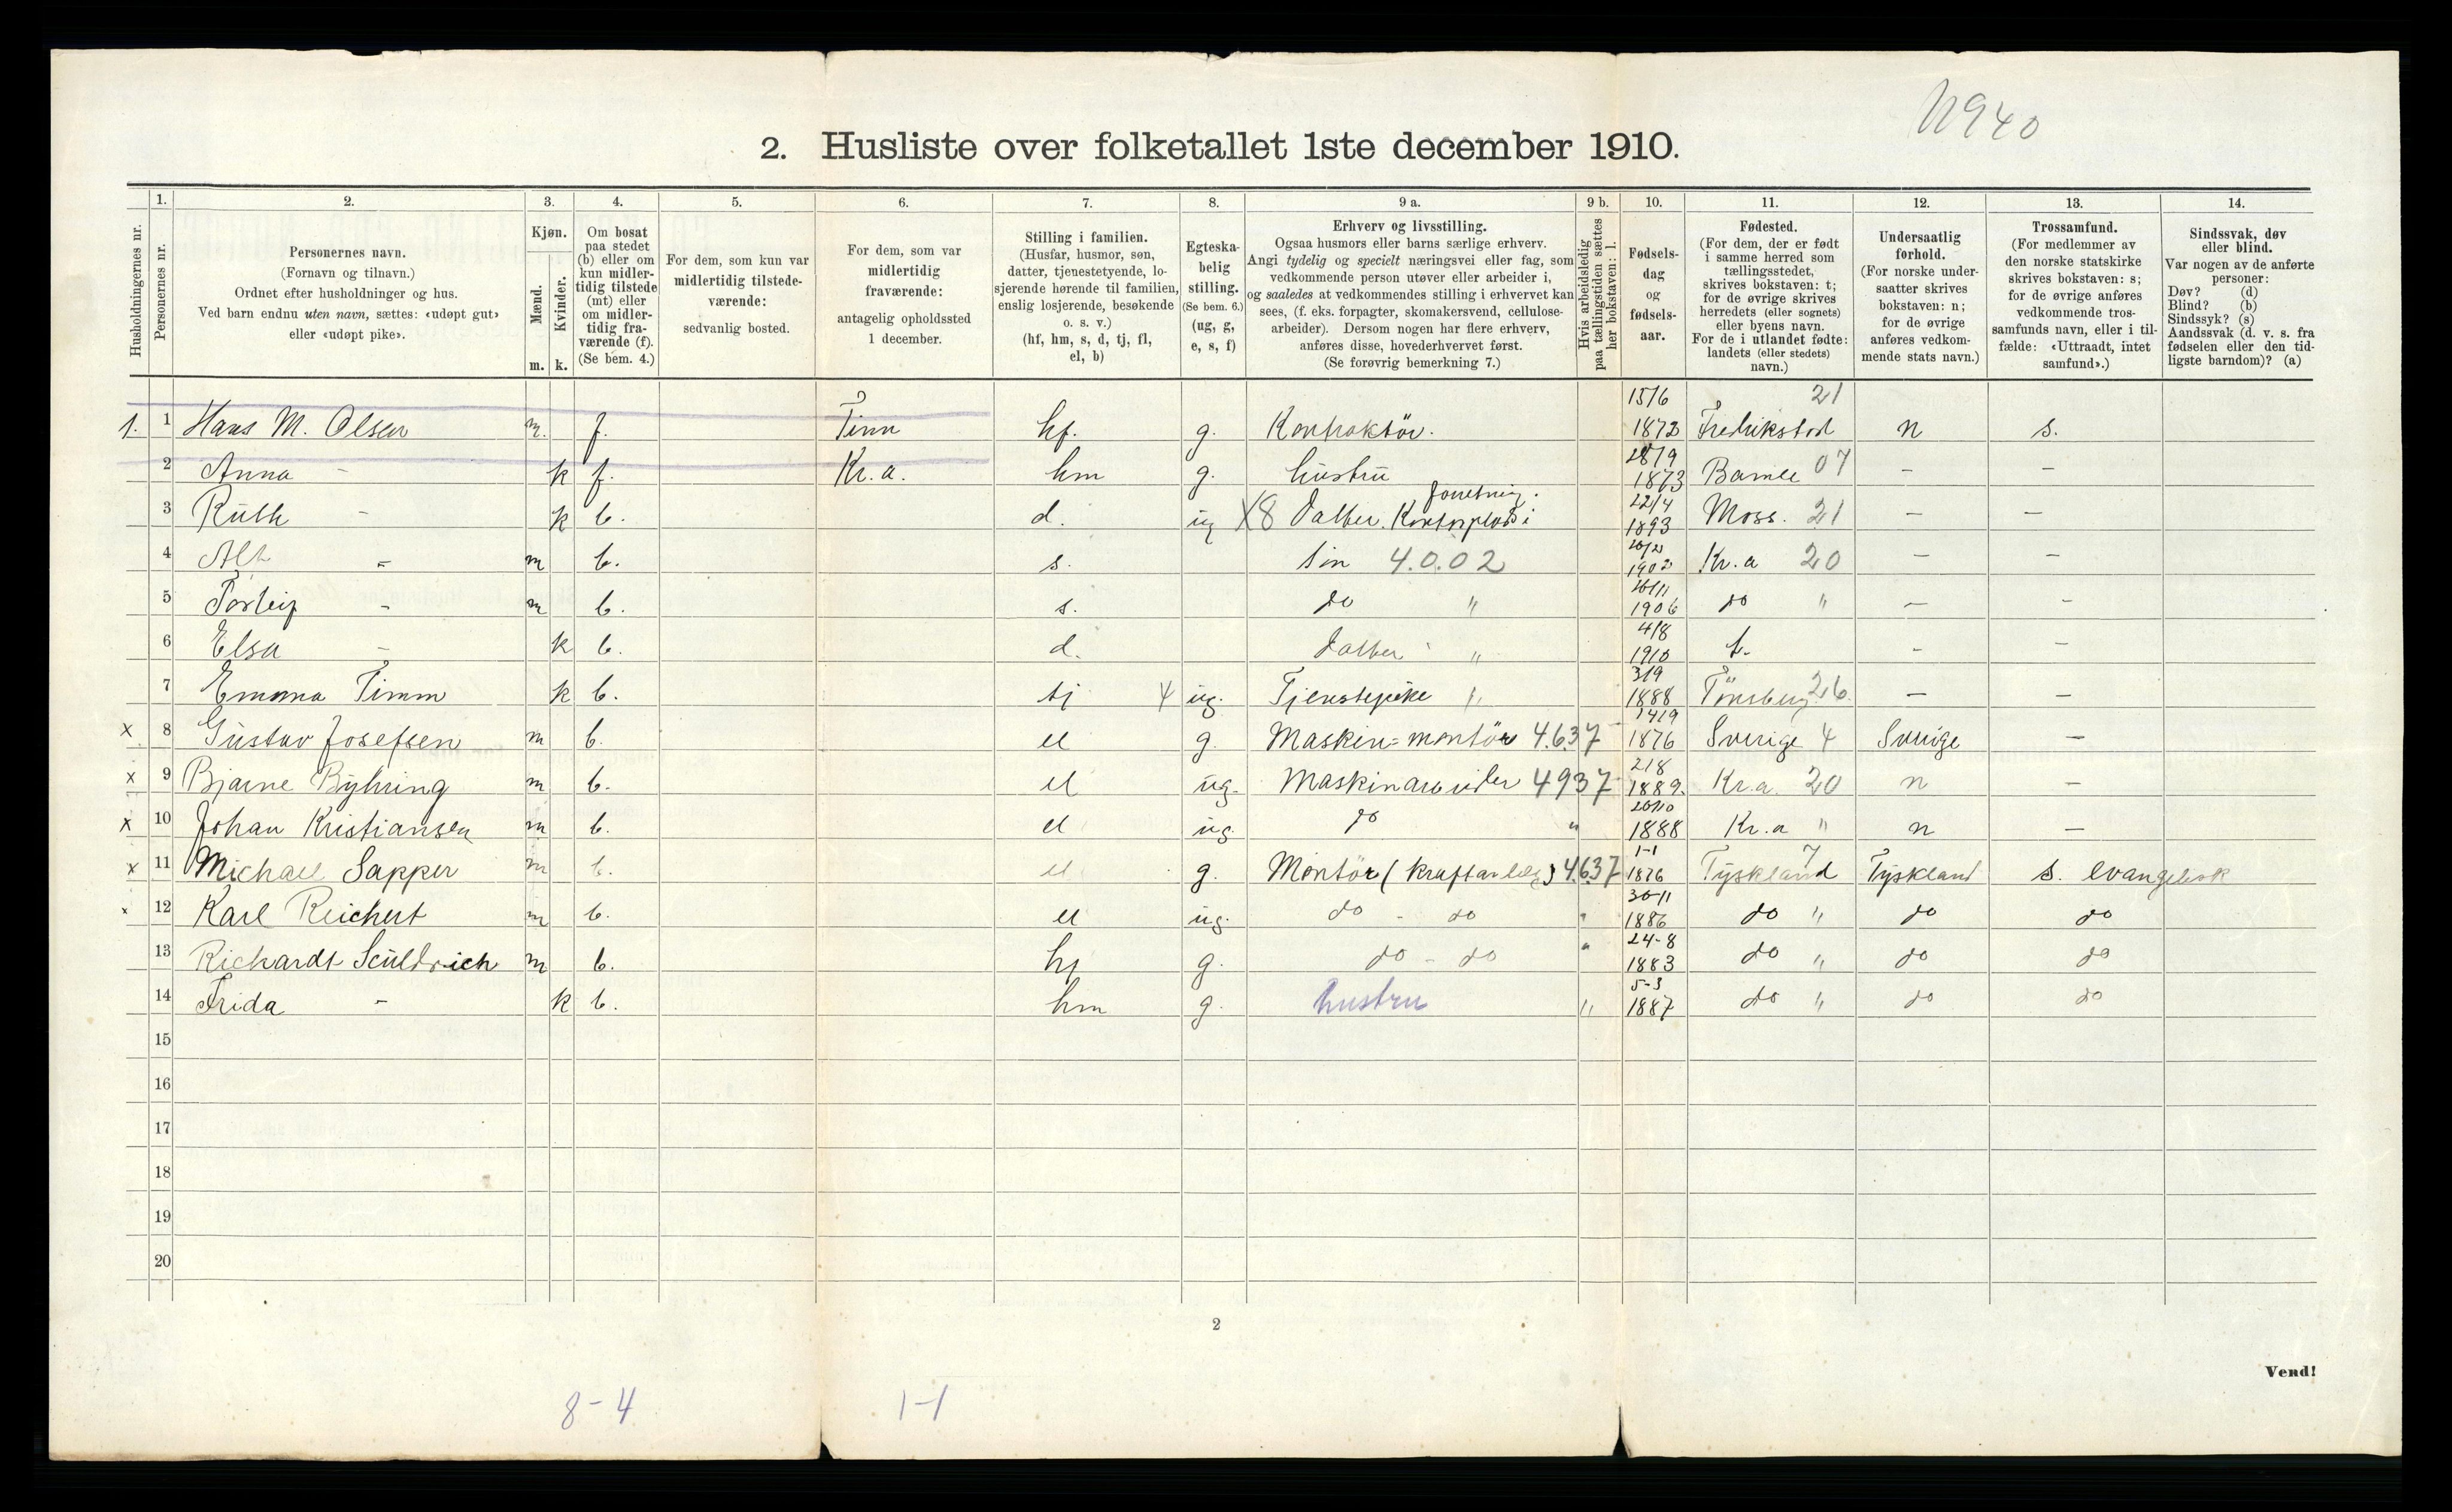 N940
2. Husliste over folketallet 1ste december 1910.
1. 2. 3. 4. 5. 6. 7. 8. 9 a. 9 b. 10. 11. 12. 13. 14.
Husholdningernes nr.
Personernes nr.
Personernes navn.
(Fornavn og tilnavn.)
Ordnet efter husholdninger og hus.
Ved barn endnu uten navn, sættes: «udøpt gut»
eller «udøpt pike».
Kjøn.
Mænd.
Kvinder.
m. k.
Om bosat
paa stedet
(b) eller om
kun midler-
tidig tilstede
(mt) eller
om midler-
tidig fra-
værende (f).
(Se bem. 4.)
For dem, som kun var
midlertidig tilstede-
værende:
sedvanlig bosted.
For dem, som var
midlertidig
fraværende:
antagelig opholdssted
1 december.
Stilling i familien.
(Husfar, husmor, søn,
datter, tjenestetyende, lo-
sjerende hørende til familien,
enslig losjerende, besøkende
o. s. v.)
(hf, hm, s, d, tj, fl,
el, b)
Egteska-
belig
stilling.
(Se bem. 6.)
(ug, g,
e, s, f)
Erhverv og livsstilling.
Ogsaa husmors eller barns særlige erhverv.
Angi tydelig og specielt næringsvei eller fag, som
vedkommende person utøver eller arbeider i,
og saaledes at vedkommendes stilling i erhvervet kan
sees, (f. eks. forpagter, skomakersvend, cellulose-
arbeider). Dersom nogen har flere erhverv,
anføres disse, hovederhvervet først.
(Se forøvrig bemerkning 7.)
Hvis arbeidsledig
paa tællingstiden sættes
her bokstaven: l.
Fødsels-
dag
og
fødsels-
aar.
Fødested.
(For dem, der er født
i samme herred som
tællingsstedet,
skrives bokstaven: t;
for de øvrige skrives
herredets (eller sognets)
eller byens navn.
For de i utlandet fødte:
landets (eller stedets)
navn.)
Undersaatlig
forhold.
(For norske under-
saatter skrives
bokstaven: n;
for de øvrige
anføres vedkom-
mende stats navn.)
Trossamfund.
(For medlemmer av
den norske statskirke
skrives bokstaven: s;
for de øvrige anføres
vedkommende tros-
samfunds navn, eller i til-
fælde: «Uttraadt, intet
samfund».)
Sindssvak, døv
eller blind.
Var nogen av de anførte
personer:
Døv? (d)
Blind? (b)
Sindssyk? (s)
Aandssvak (d. v. s. fra
fødselen eller den tid-
ligste barndom)? (a)
1. 1 Hans M. Olsen m. f. Tinn hf. g. Kontraktör. 15/6 1872 Fredrikstad 21 n s.
2 Anna - k f. Kr.a. hm g. hustru 28/9 1873 Bamle 07 - -
3 Ruth - k b. d. ug X8 Datter. Kontorplads i forretning. 22/4 1893 Moss. 21 - -
4 Alf - m b. s. sön 4.0.02 1902 Kr.a 20 - -
5 Torleif - m b. s. do " 26/11 1906 do " - -
6 Elsa - k b. d. Datter " 4/8 1910 t. - -
7 Emma Timm k b. tj ug. Tjenestepike " 3/9 1888 Tönsberg 26. - -
x 8 Gustav Josefsen m b. el g. Maskin=montör 4.6.37 14/9 1876 Sverige 4 Sverige -
x 9 Bjarne Byhring m b. el ug. Maskinarbeider 4937 21/8 1889. Kr.a. 20 n -
x 10 Johan Kristiansen m b. el ug. do " 20/10 1888 Kr.a " n -
x 11 Michael Sapper m b. el g. Montör (Kraftanlæg) 4.6.37 1-1 1876 Tyskland 7 Tyskland s. evangelisk
x 12 Karl Reichert m b. el ug. do - do " 30-11 1886 do " do do
13 Richardt Sculdrich m b. hf g. do - do " 24-8 1883 do " do do
14 Frida - k b. hm g. hustru " 5-3 1887 do " do do
15
16
17
18
19
20
2
Vend!
8-4 1-1